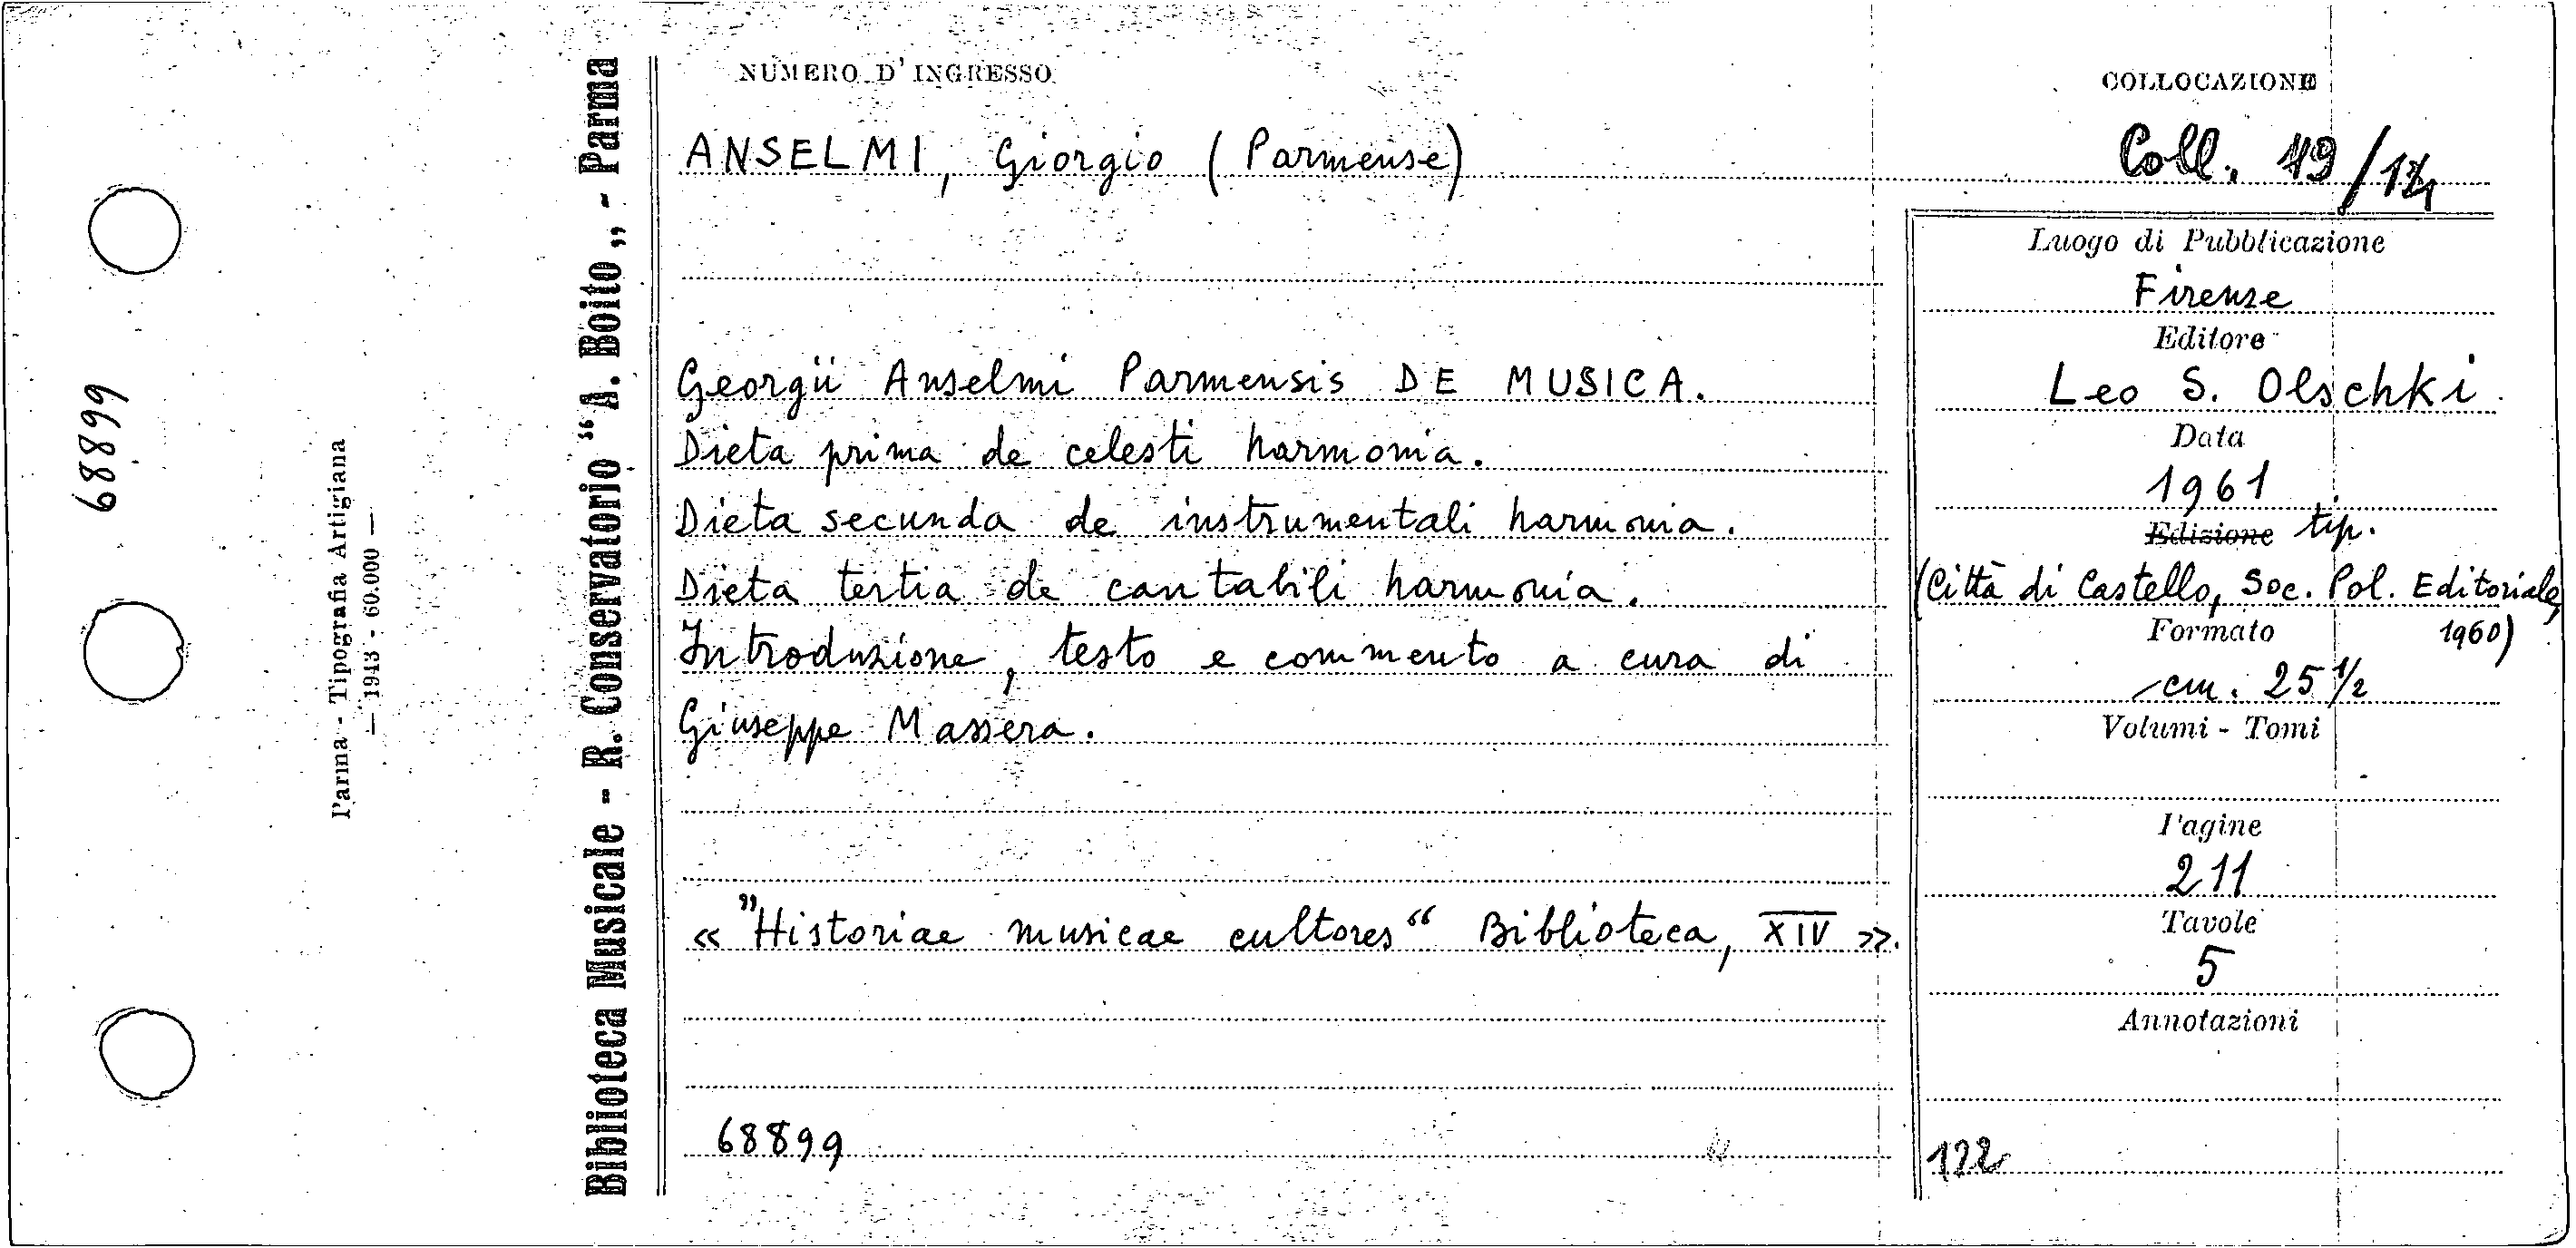 68899
Parma - Tipografia Artigiana
— 1943 - 60.000 —
Biblioteca Musicale - R. Conservatorio “A. Boito„ - Parma
NUMERO D'INGRESSO
ANSELMI, Giorgio (Parmense)
Georgii Anselmi Parmensis DE MUSICA.
Dieta prima de celesti harmonia.
Dieta secunda de instrumentali harmonia.
Dieta tertia de cantabili harmonia.
Introduzione, testo e commento a cura di
Giuseppe Massera.
« "Historiae musicae cultores" Biblioteca, XIV ».
68899
COLLOCAZIONE
Coll.
Luogo di Pubblicazione
Firenze
Editore
Leo S. Olschki
Data
1961
Edizione tip.
(Città di Castello, Soc. Pol. Editoriale,
Formato 1960)
cm. 25 ½
Volumi - Tomi
Pagine
211
Tavole
5
Annotazioni
122